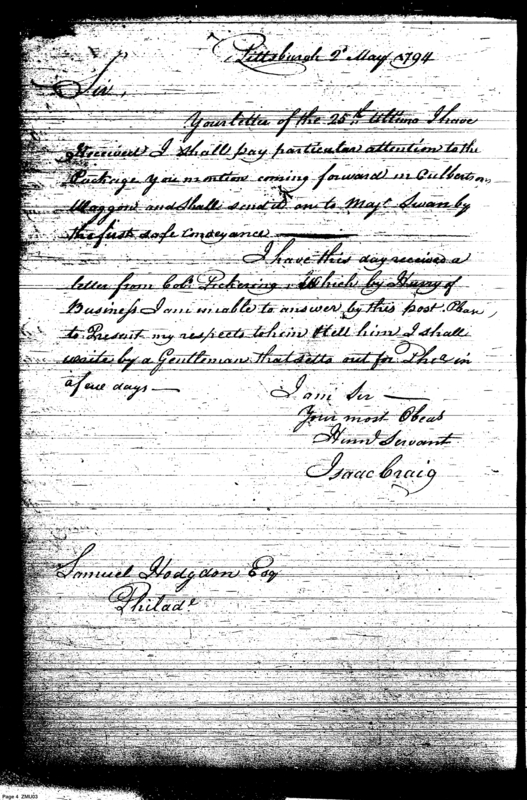 Pittsburgh 2d May 1794
Sir,
Your letter of the 25th Ultimo I have
Received I shall pay particular attention to the
Package you mention coming forward in Culbertsons
Waggon and shall send it on to Majr Swan by
the first safe Conveyance
I have this day received a
letter from Colo Pickering, Which by Hurry of
Business I am unable to answer by this post.
to Present my respects to him & tell him I shall
write by a Gentleman that setts out for Phia in
a few days —
I am Sir —
Your most Obedt
Humbl Servant
Isaac Craig
Samuel Hodgdon Esq
Philada
Page 4 ZMU03